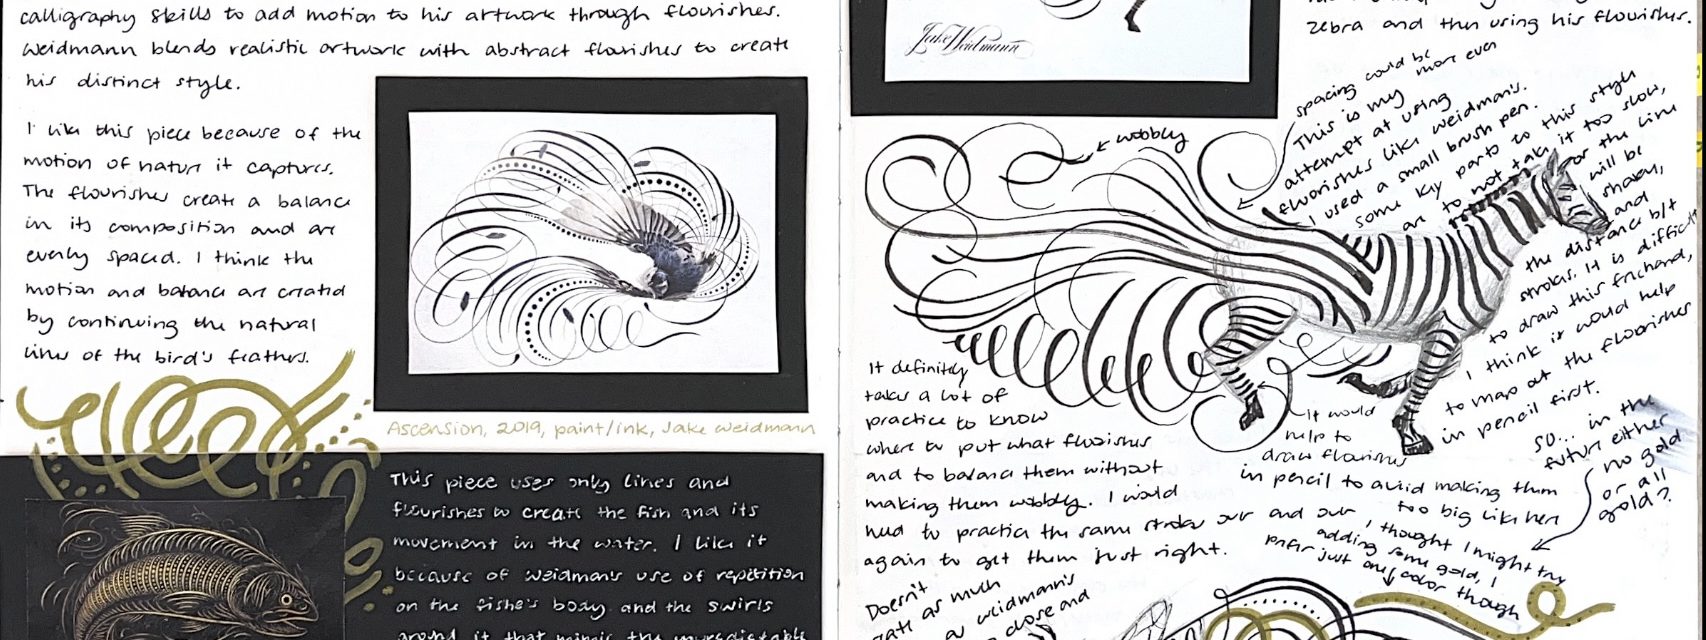 calligraphy skills to add motion to his artwork through flourishes.
Weidmann blends realistic artwork with abstract flourishes to create
his distinct style.
I like this piece because of the
motion of nature it captures.
The flourishes create a balance
in its composition and are
evenly spaced. I think the
motion and balance are created
by continuing the natural
lines of the bird's feathers.
Ascension, 2019, paint/ink, Jake Weidmann
This piece uses only lines and
flourishes to create the fish and its
movement in the water. I like it
because of Weidman's use of repetition
on the fishe's body and the swirls
around it that mimic the unpredictable
Jake Weidmann
zebra and then using his flourishes.
spacing could be
more even
← wobbly
This is my
attempt at using
flourishes like weidman's.
I used a small brush pen.
some key parts to this style
are to not take it too slow,
or the line
will be
shaky,
and
the distance b/t
strokes. It is difficult
to draw this freehand,
I think it would help
to map out the flourishes
in pencil first.
It definitely
takes a lot of
practice to know
where to put what flourishes
and to balance them without
making them wobbly. I would
need to practice the same strokes over and over
again to get them just right.
It would
help to
draw flourishes
in pencil to avoid making them
too big like here
SO... in the
future either
no gold
or all
gold?
I thought I might try
adding some gold, I
prefer just one color though
Doesn't
as much
as weidmann's
close and